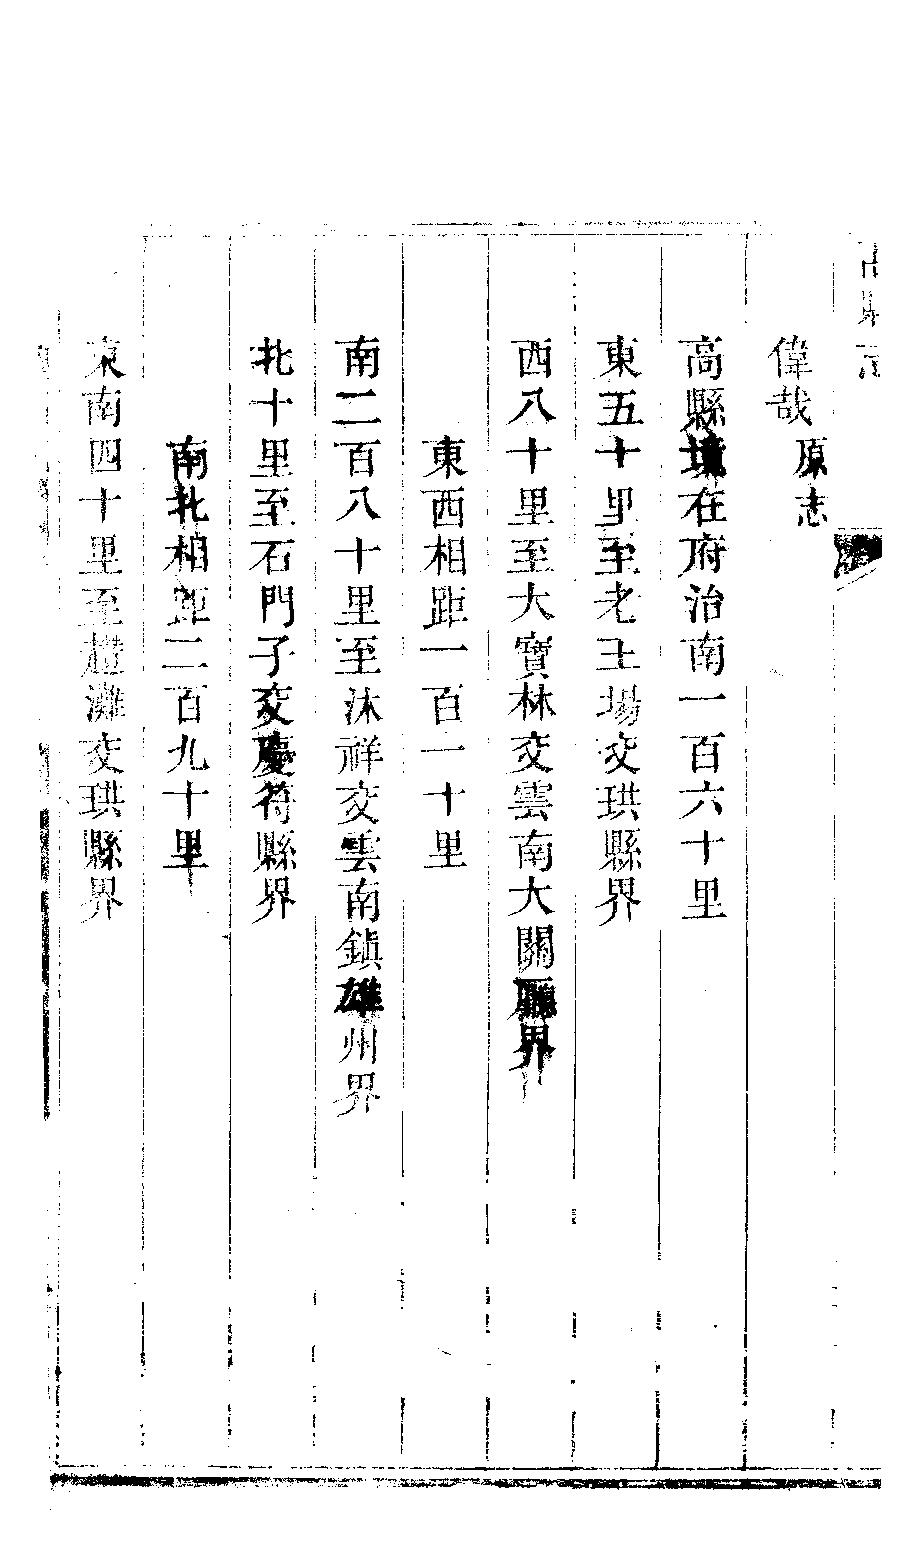 偉哉 原志
高縣境在府治南一百六十里
東五十里至老王場交珙縣界
西八十里至大寶林交雲南大關廳界
東西相距一百一十里
南二百八十里至沐祥交雲南鎮雄州界
北十里至石門子交慶符縣界
南北相距二百九十里
東南四十里至趱灘交珙縣界